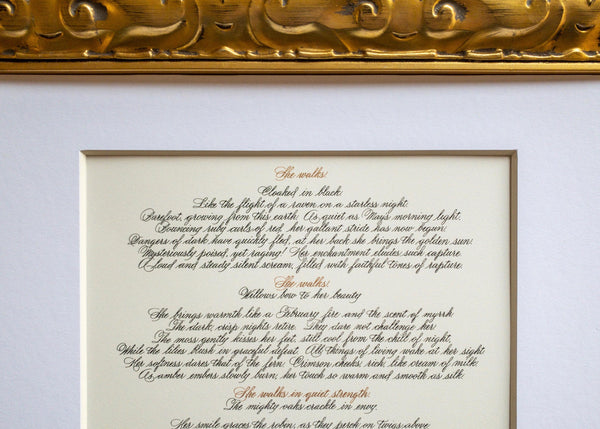 She walks.
Cloaked in black.
Like the flight of a raven on a starless night.
Barefoot, growing from this earth. As quiet as May's morning light,
Bouncing ruby curls of red, her gallant stride has now begun.
Dangers of dark have quickly fled, at her back she brings the golden sun.
Mysteriously poised, yet raging! Her enchantment eludes such capture.
A loud and steady silent scream, filled with faithful tones of rapture.
She walks.
Willows bow to her beauty
She brings warmth like a February fire and the scent of myrrh.
The dark, crisp nights retire. They dare not challenge her.
The moss gently kisses her feet, still cool from the chill of night,
While the lilies blush in graceful defeat. All things of living wake at her sight.
Her softness dares that of the fern. Crimson cheeks, rich, like cream of milk.
As amber embers slowly burn, her touch so warm and smooth as silk.
She walks in quiet strength.
The mighty oaks crackle in envy.
Her smile graces the robin, as they perch on twigs above